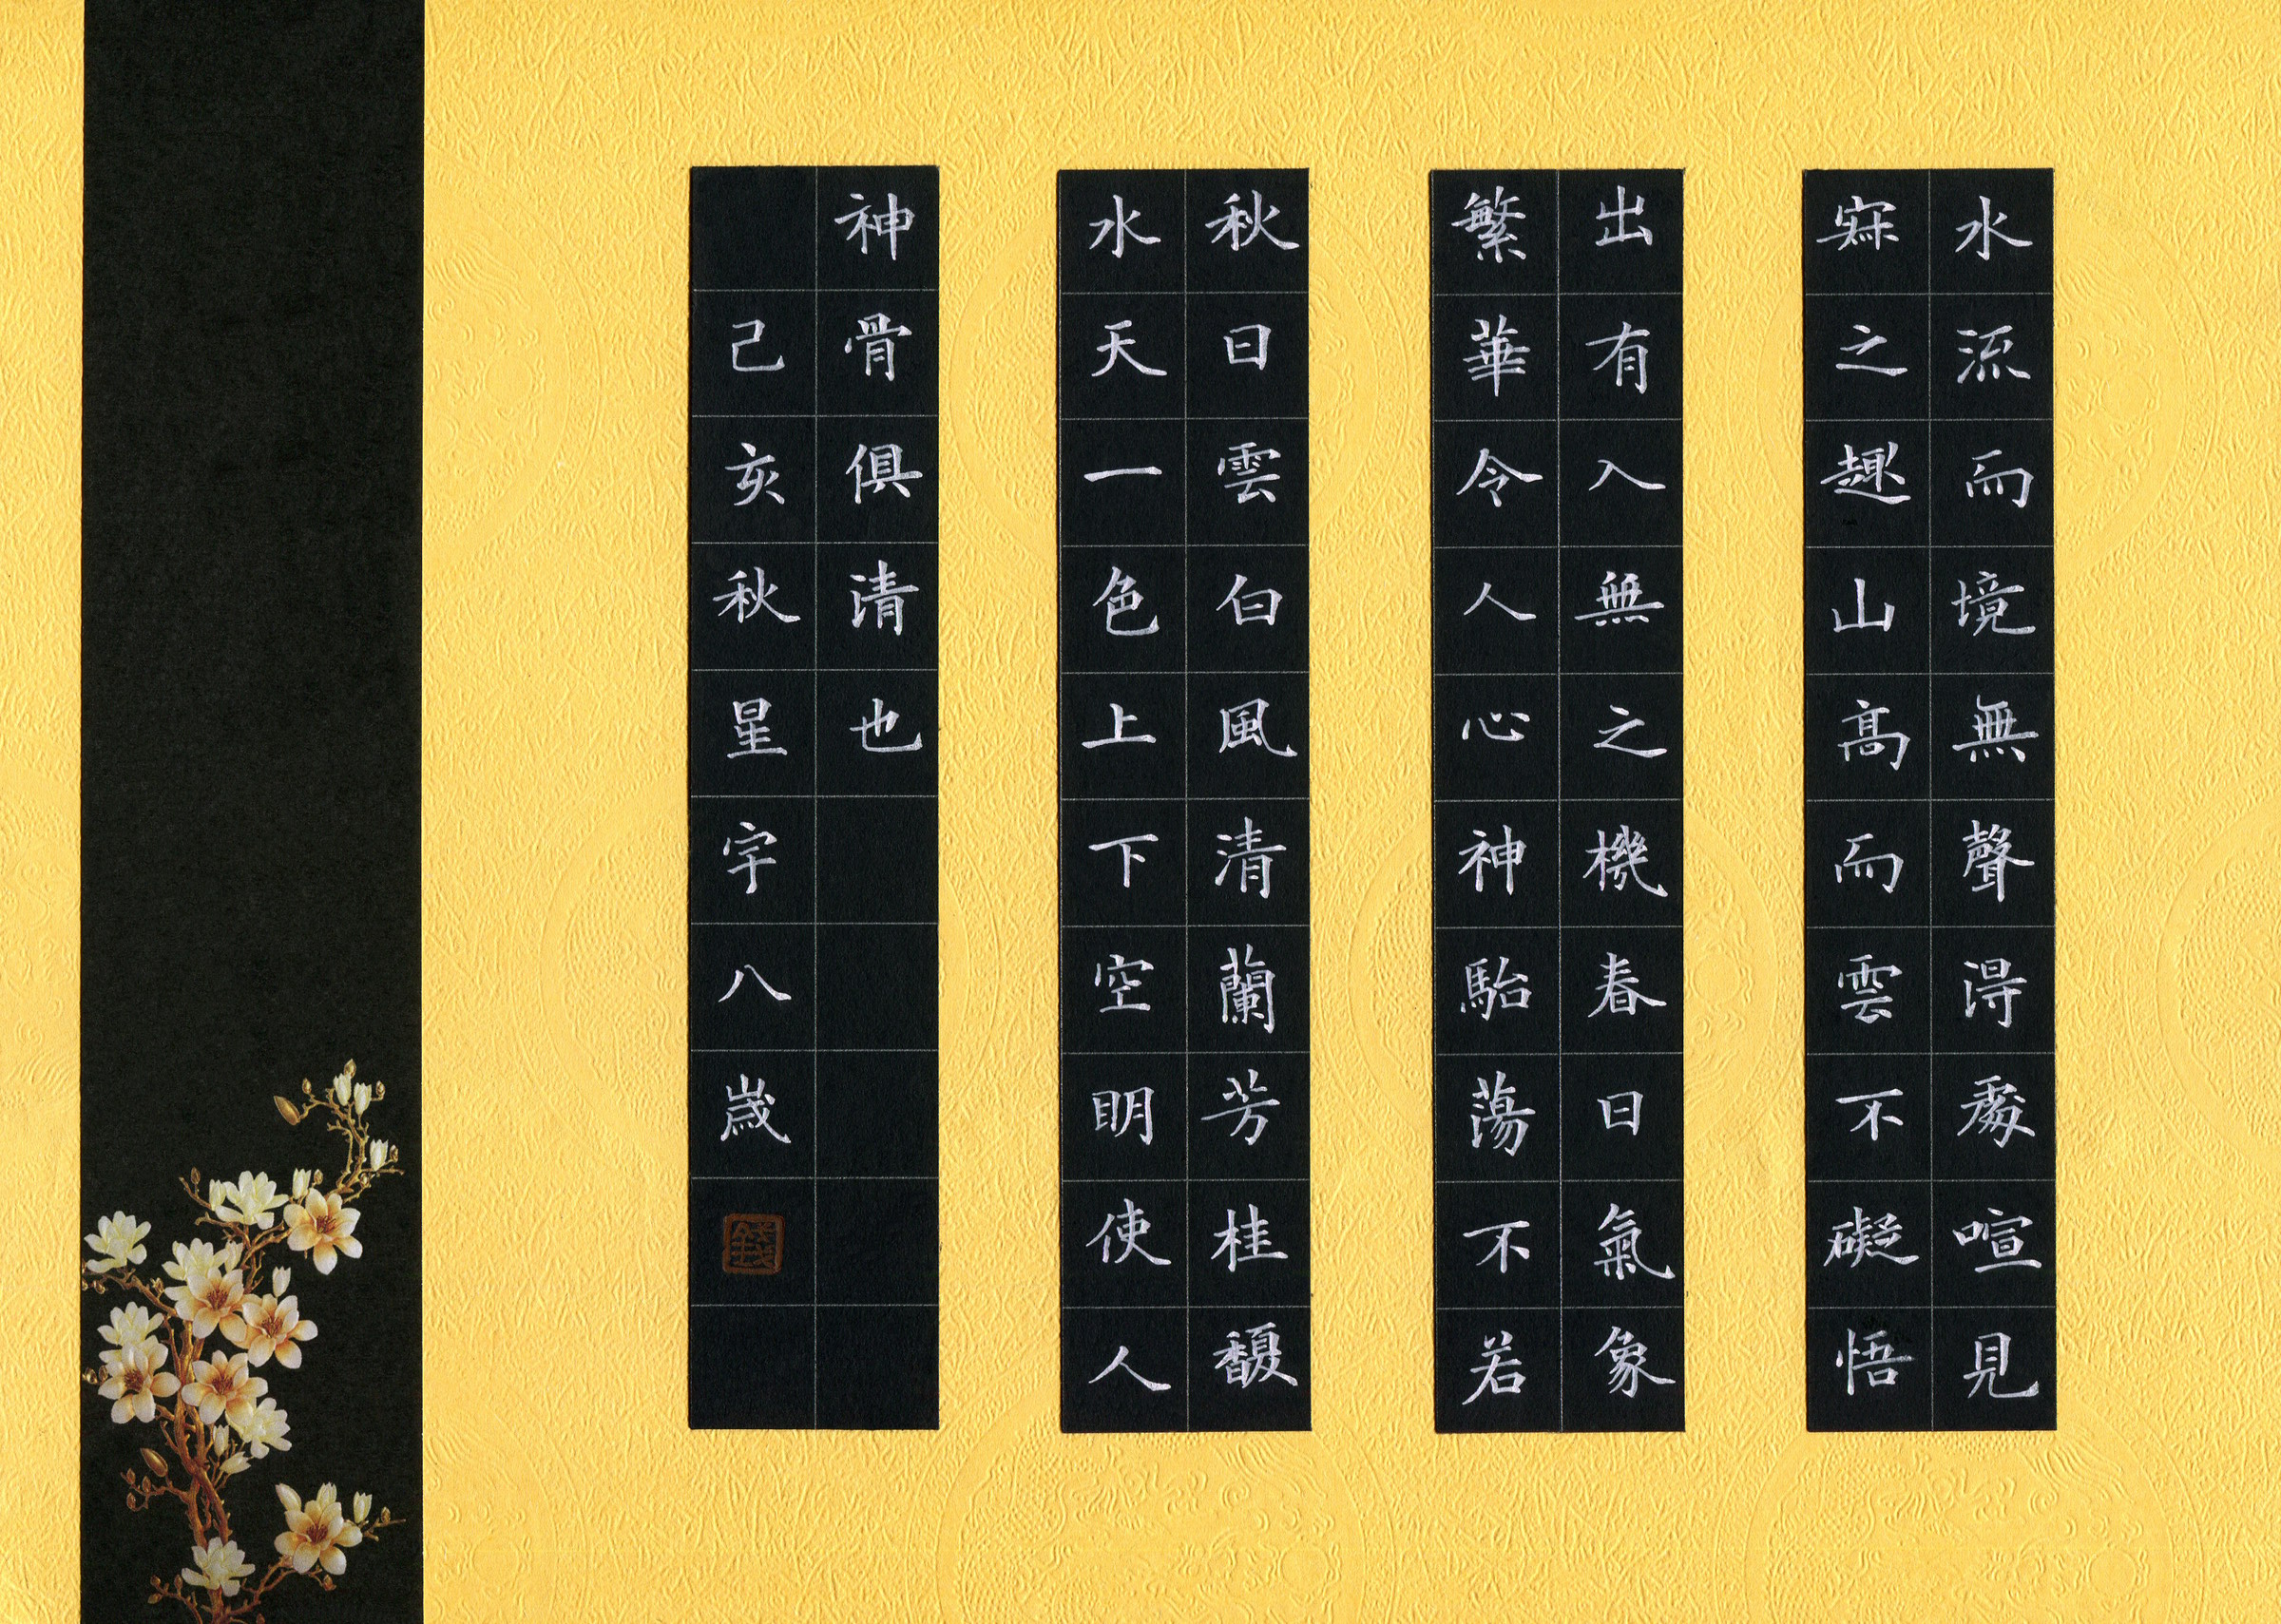 水流而境無聲得處喧見
寂之趣山高而雲不礙悟
出有入無之機春日氣象
繁華令人心神駘蕩不若
秋日雲白風清蘭芳桂馥
水天一色上下空明使人
神骨俱清也
己亥秋星宇八歲
錢